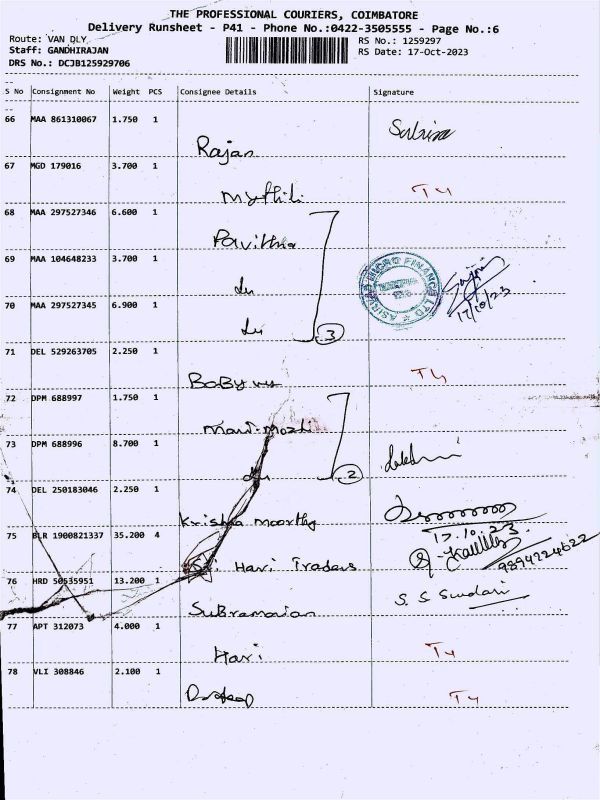 THE PROFESSIONAL COURIERS, COIMBATORE
Delivery Runsheet - P41 - Phone No.:0422-3505555 - Page No.:6
Route: VAN DLY
Staff: GANDHIRAJAN
DRS No.: DCJB125929706
RS No.: 1259297
RS Date: 17-Oct-2023
S No Consignment No Weight PCS Consignee Details Signature
66 MAA 861310067 1.750 1
Rajan
67 MGD 179016 3.700 1
Mythili T4
68 MAA 297527346 6.600 1
Pavithra
69 MAA 104648233 3.700 1
du
MICRO FINANCE LTD
17/10/23
70 MAA 297527345 6.900 1
du 3
71 DEL 529263705 2.250 1
BaBy T4
72 DPM 688997 1.750 1
73 DPM 688996 8.700 1
du 2
74 DEL 250183046 2.250 1
Krishna moorthy
17.10.23
75 BLR 1900821337 35.200 4
Sri Hari Traders 9894224622
76 HRD 50535951 13.200 1
Subramanian S. S Sundari
77 APT 312073 4.000 1
Hari T4
78 VLI 308846 2.100 1
T4